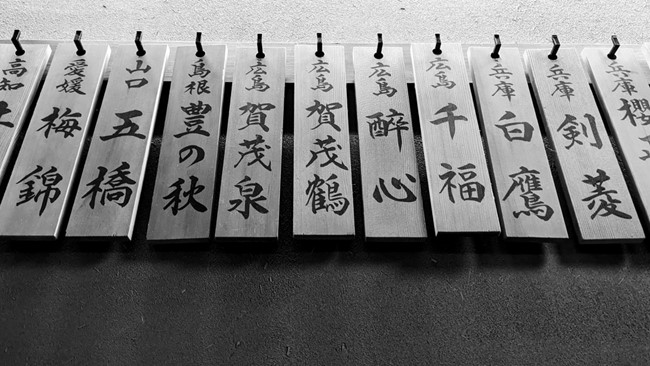 兵庫
櫻正
兵庫
剣菱
兵庫
白鷹
広島
千福
広島
酔心
広島
賀茂鶴
広島
賀茂泉
島根
豊の秋
山口
五橋
愛媛
梅錦
高知
土